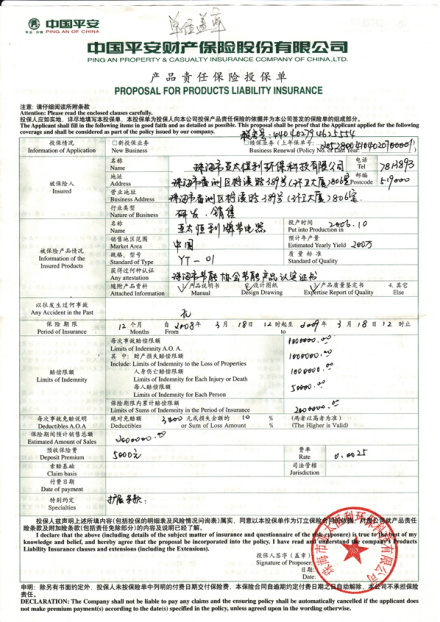 中国平安
PING AN OF CHINA
中国平安财产保险股份有限公司
PING AN PROPERTY & CASUALTY INSURANCE COMPANY OF CHINA,LTD.
产品责任保险投保单
PROPOSAL FOR PRODUCTS LIABILITY INSURANCE
注意: 请仔细阅读所附条款
Attention: Please read the enclosed clauses carefully.
投保人应如实地、详尽地填写本投保单,本投保单为投保人向本公司投保产品责任保险的依据并为本公司签发的保险单的组成部分。
The Applicant shall fill in the following items in good faith and as detailed as possible. This proposal shall be proof that the Applicant applied for the following
coverage and shall be considered as part of the policy issued by our company.
投保情况 □新投保业务 □续保业务(上年保单号:
Information of Application New Business Business Renewal (Policy No. of Last Year:
被保险人
Insured
名称
Name 珠海市亚太恒利环保科技有限公司 电话 Tel
地址
Address 邮编 Postcode 519000
营业地址
Business Address
行业类型
Nature of Business 研发、销售
被保险产品情况
Information of the Insured Products
名称
Name 亚太恒利节电器 投产时间 Put into Production in 2006.10
销售地区范围
Market Area 中国 预计年产量 Estimated Yearly Yield 200万
规格、型号
Standard of Type YT-01 质量标准 Standard of Quality
获得过何种认证
Any attestation
随附产品资料 产品说明书 设计图纸 产品质量鉴定书 4. 其它
Attached Information Manual Design Drawing Expertise Report of Quality Else
以往发生过何事故
Any Accident in the Past 无
保险期限 12 个月 自 2008年 3 月 18 日 12 时起至 2009年 3 月 18 日 12 时止
Period of Insurance Months From to
赔偿限额
Limits of Indemnity
每次事故赔偿限额
Limits of Indemnity A.O.A. 1000000.00
其中: 财产损失赔偿限额
Include: Limits of Indemnity to the Loss of Properties 1000000.00
人身伤亡赔偿限额
Limits of Indemnity for Each Injury or Death 1000000.00
每人赔偿限额
Limits of Indemnity for Each Person 50000.00
保险期限内累计赔偿限额
Limits of Sums of Indemnity in the Period of Insurance 2000000.00
每次事故免赔说明 绝对免赔额 元或损失金额的 10 % (两者以高者为准)
Deductibles A.O.A Deductibles or Sum of Loss Amount % (The Higher is Valid)
保险期间预计销售总额
Estimated Amount of Sales
预收保险费
Deposit Premium 5000元 费率 Rate 0.0025
索赔基础
Claim basis 司法管辖 Jurisdiction
付费日期
Date of payment
特别约定
Specialties 扩展条款:
投保人兹声明上述所填内容(包括投保的明细表及风险情况问询表)属实,同意以本投保单作为订立保险合同的依据,对贵公司就产品责任
险条款及附加险条款(包括责任免除部分)的内容及说明已经了解。
I declare that the above (including details of the subject matter of insurance and questionnaire of the risk exposure) is true to the best of my
knowledge and belief, and hereby agree that the proposal be incorporated into the policy. I have read and understand the company's Products
Liability Insurance clauses and extensions (including the Extensions).
投保人签字(盖章):
Signature of Proposer:
日期:
Date:
申明: 除另有书面约定外,投保人未按保险单中列明的付费日期交付保险费,本保险合同自逾期的约定付费日期之日自动解除,本公司不承担保险
责任。
DECLARATION: The Company shall not be liable to pay any claims and the ensuring policy shall be automatically cancelled if the applicant does
not make premium payment(s) according to the date(s) specified in the policy, unless agreed upon in the wording otherwise.